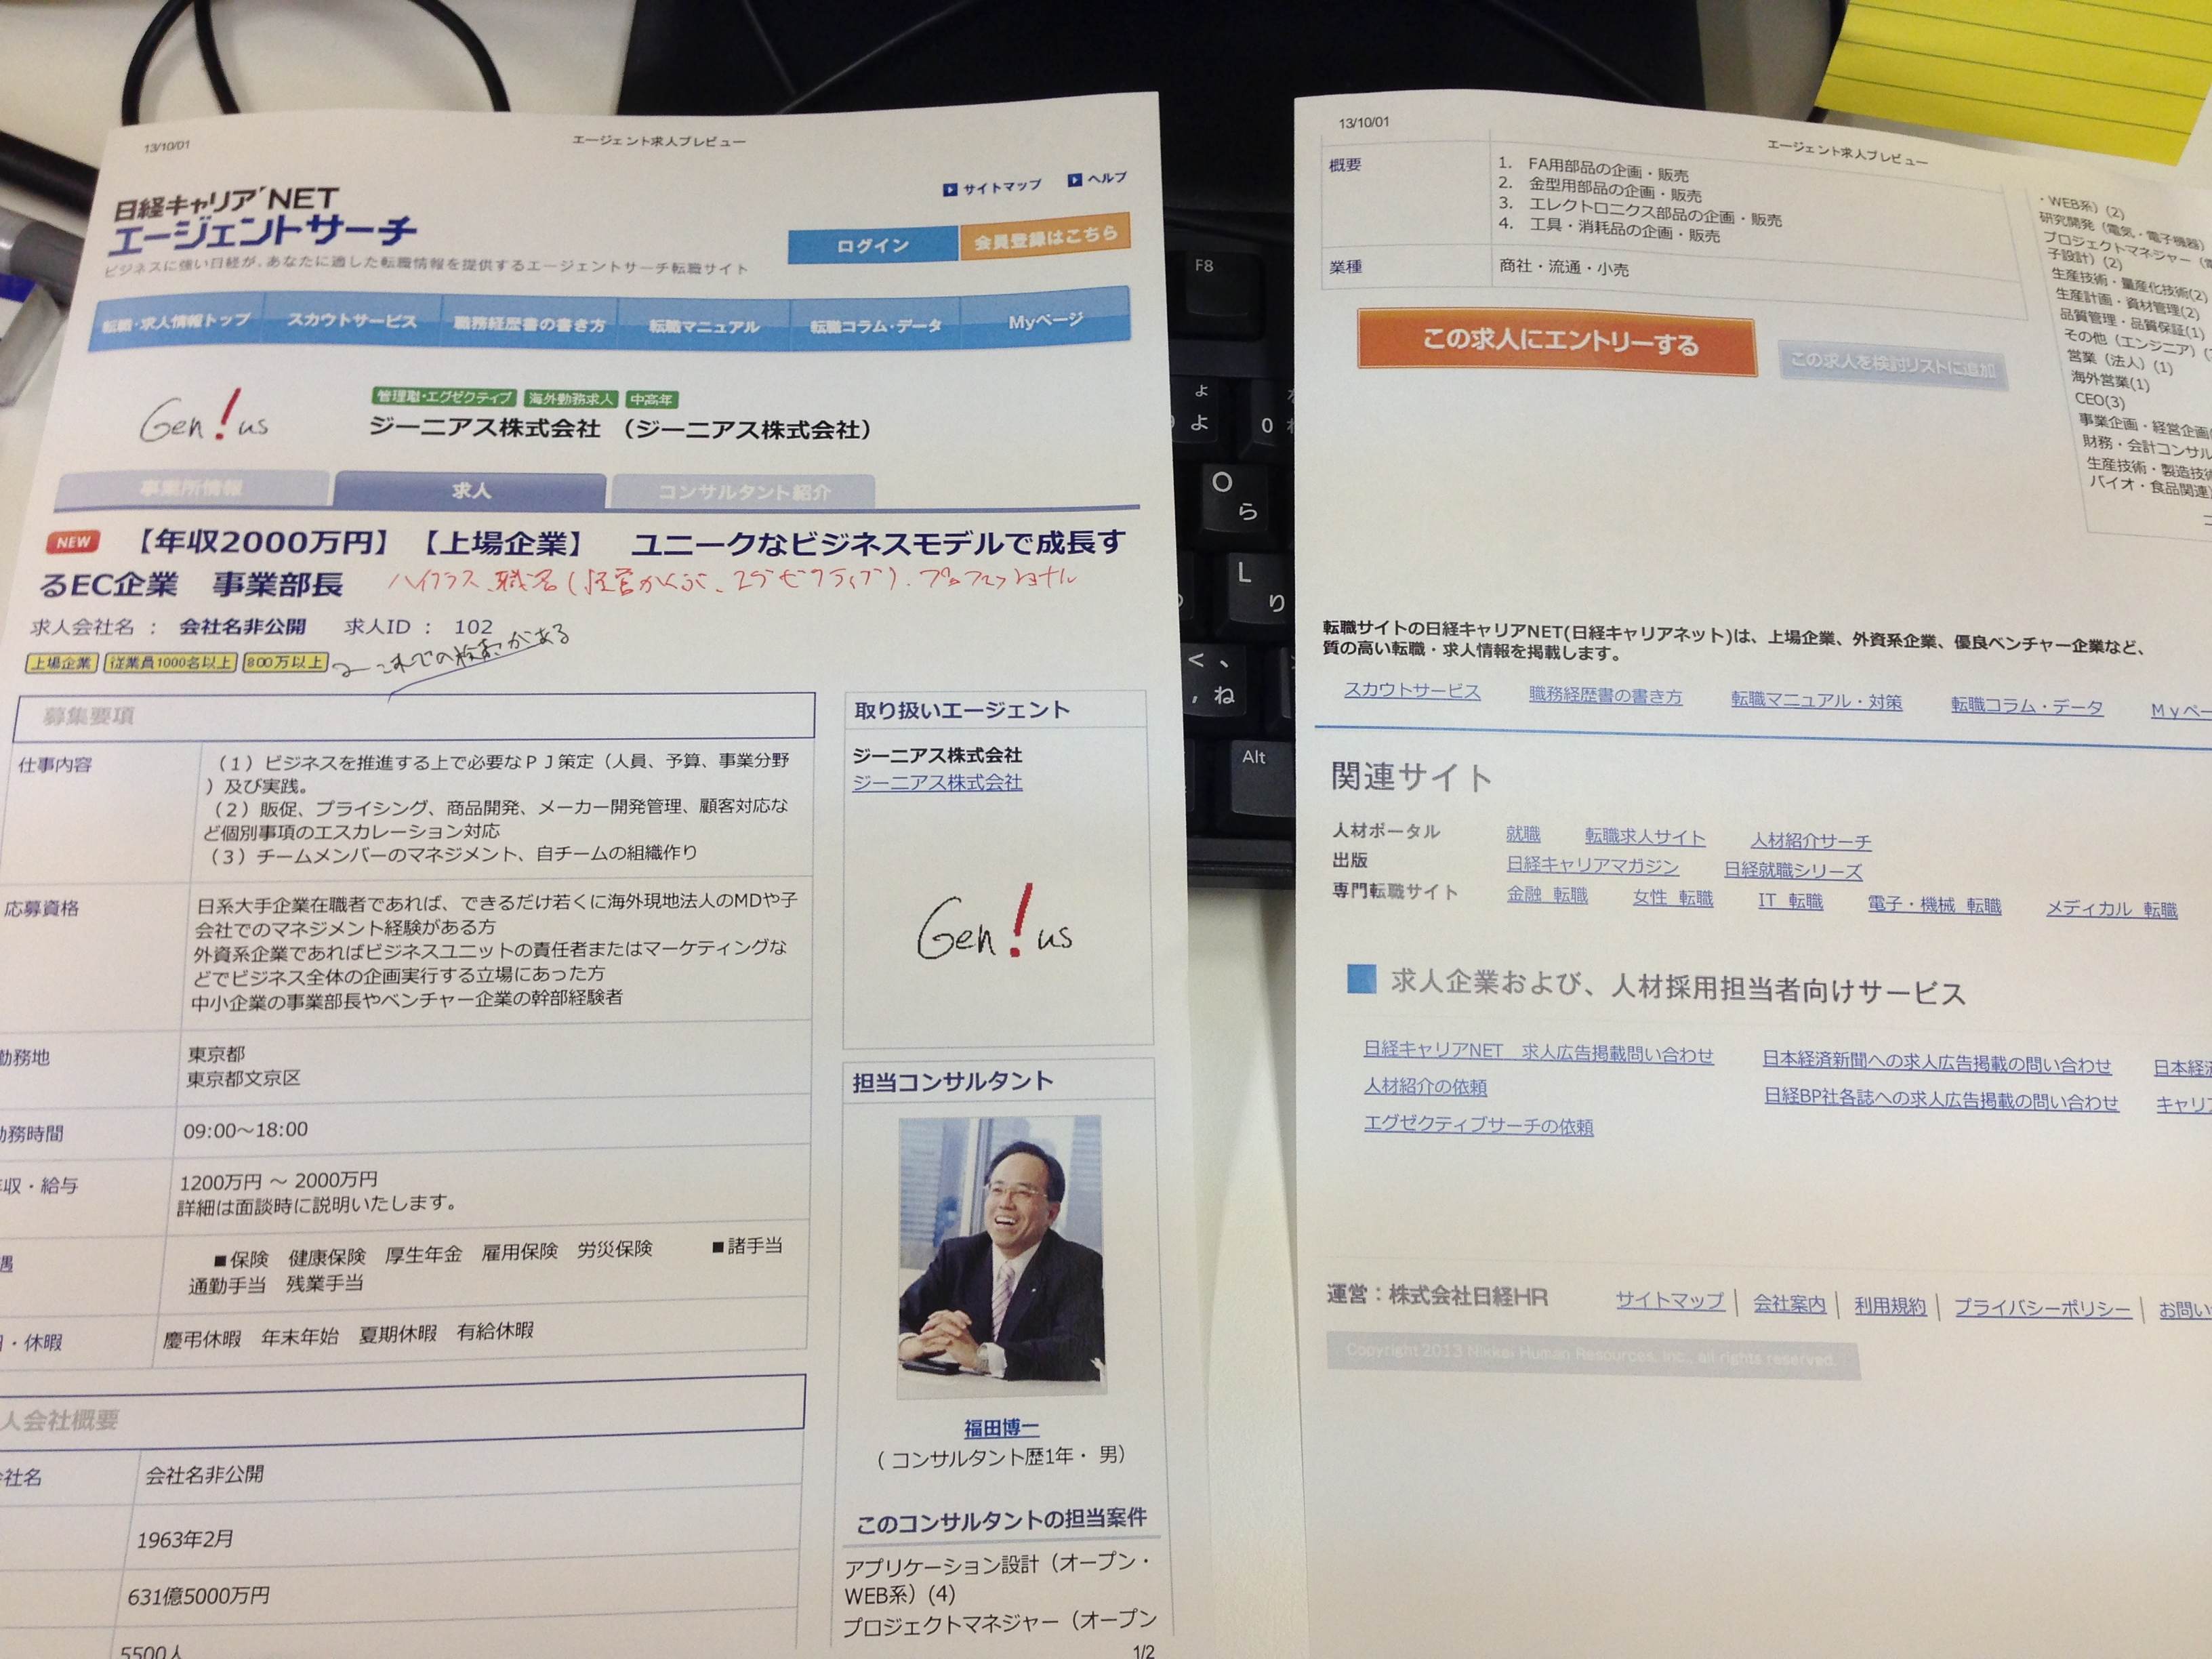 13/10/01
エージェント求人プレビュー
日経キャリアNET
エージェントサーチ
ビジネスに強い日経が、あなたに適した転職情報を提供するエージェントサーチ転職サイト
サイトマップ ヘルプ
ログイン 会員登録はこちら
転職・求人情報トップ スカウトサービス 職務経歴書の書き方 転職マニュアル 転職コラム・データ Myページ
Gen!us
管理職・エグゼクティブ 海外勤務求人 中高年
ジーニアス株式会社 （ジーニアス株式会社）
事業所情報 求人 コンサルタント紹介
NEW 【年収2000万円】【上場企業】 ユニークなビジネスモデルで成長す
るEC企業 事業部長
ハイクラス、職名(経営かんぶ、エグゼクティブ)、プロフェッショナル
求人会社名 ： 会社名非公開 求人ID ： 102
上場企業 従業員1000名以上 800万以上
募集要項
仕事内容
（1）ビジネスを推進する上で必要なＰＪ策定（人員、予算、事業分野
）及び実践。
（2）販促、プライシング、商品開発、メーカー開発管理、顧客対応な
ど個別事項のエスカレーション対応
（3）チームメンバーのマネジメント、自チームの組織作り
応募資格
日系大手企業在職者であれば、できるだけ若くに海外現地法人のMDや子
会社でのマネジメント経験がある方
外資系企業であればビジネスユニットの責任者またはマーケティングな
どでビジネス全体の企画実行する立場にあった方
中小企業の事業部長やベンチャー企業の幹部経験者
勤務地
東京都
東京都文京区
勤務時間
09:00～18:00
年収・給与
1200万円 ～ 2000万円
詳細は面談時に説明いたします。
遇
■保険 健康保険 厚生年金 雇用保険 労災保険 ■諸手当
通勤手当 残業手当
・休暇
慶弔休暇 年末年始 夏期休暇 有給休暇
人会社概要
会社名
会社名非公開
1963年2月
631億5000万円
5500人
取り扱いエージェント
ジーニアス株式会社
ジーニアス株式会社
Gen!us
担当コンサルタント
福田博一
（ コンサルタント歴1年・ 男）
このコンサルタントの担当案件
アプリケーション設計（オープン・
WEB系）(4)
プロジェクトマネジャー（オープン
1/2
F8
よ
よ
0
O
ら
L
り
<
、
,
ね
Alt
13/10/01
エージェント求人プレビュー
概要
1. FA用部品の企画・販売
2. 金型用部品の企画・販売
3. エレクトロニクス部品の企画・販売
4. 工具・消耗品の企画・販売
業種
商社・流通・小売
この求人にエントリーする この求人を検討リストに追加
・WEB系）(2)
研究開発（電気・電子機器）
プロジェクトマネジャー（電
子設計）(2)
生産技術・量産化技術(2)
生産計画・資材管理(2)
品質管理・品質保証(1)
その他（エンジニア）(
営業（法人）(1)
海外営業(1)
CEO(3)
事業企画・経営企画
財務・会計コンサル
生産技術・製造技術
バイオ・食品関連
転職サイトの日経キャリアNET(日経キャリアネット)は、上場企業、外資系企業、優良ベンチャー企業など、
質の高い転職・求人情報を掲載します。
スカウトサービス 職務経歴書の書き方 転職マニュアル・対策 転職コラム・データ Myペー
関連サイト
人材ポータル 就職 転職求人サイト 人材紹介サーチ
出版 日経キャリアマガジン 日経就職シリーズ
専門転職サイト 金融 転職 女性 転職 IT 転職 電子・機械 転職 メディカル 転職
求人企業および、人材採用担当者向けサービス
日経キャリアNET 求人広告掲載問い合わせ 日本経済新聞への求人広告掲載の問い合わせ 日本経済
人材紹介の依頼 日経BP社各誌への求人広告掲載の問い合わせ キャリア
エグゼクティブサーチの依頼
運営：株式会社日経HR サイトマップ 会社案内 利用規約 プライバシーポリシー お問い
Copyright 2013 Nikkei Human Resources, Inc., all rights reserved.